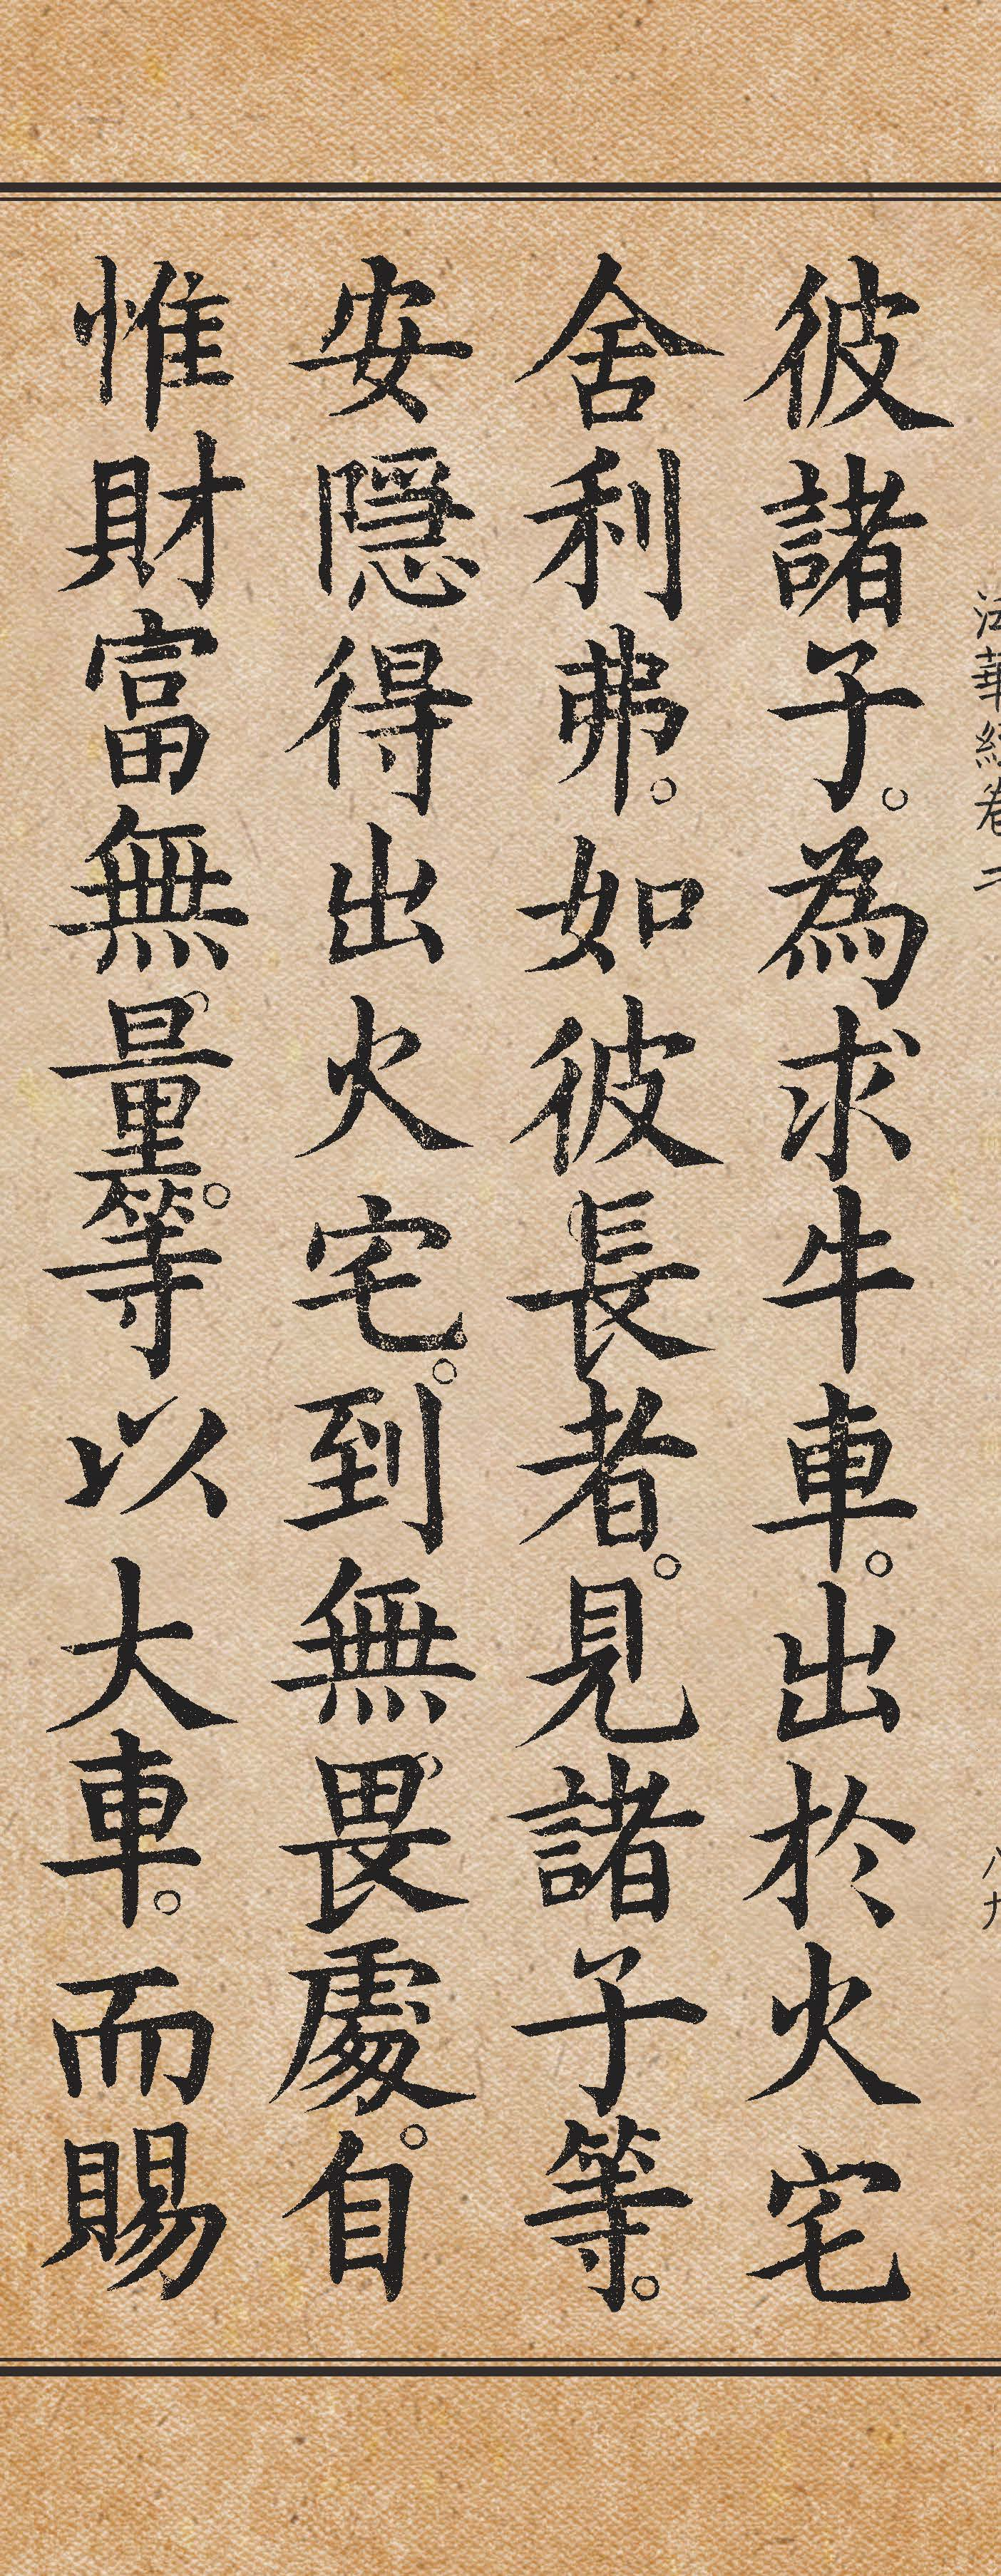 法華經卷二 八九
彼諸子。為求牛車。出於火宅
舍利弗。如彼長者。見諸子等。
安隱得出火宅。到無畏處。自
惟財富無量。等以大車。而賜